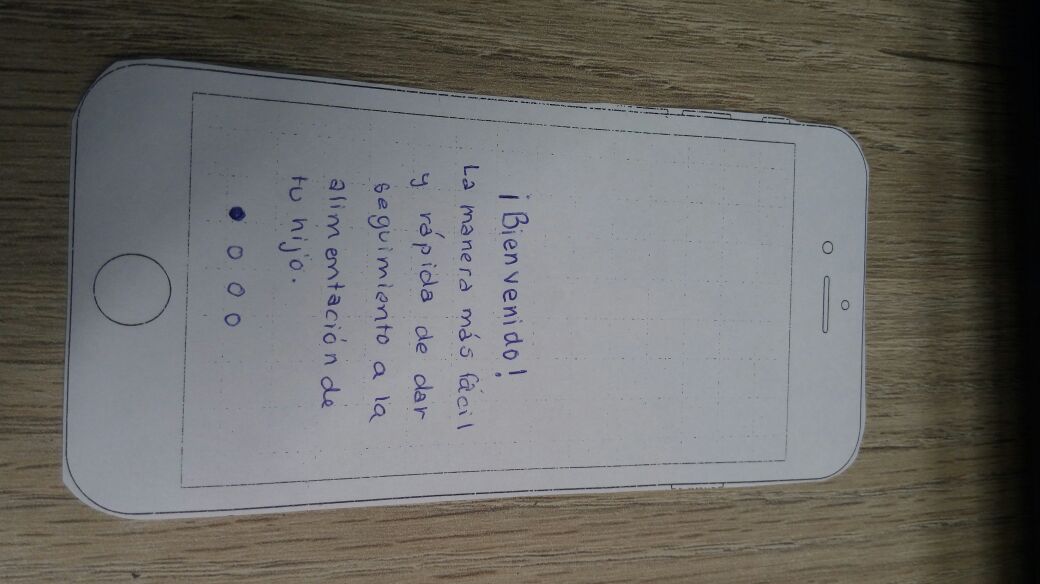 ¡Bienvenido!
La manera más fácil
y rápida de dar
seguimiento a la
alimentación de
tu hijo.